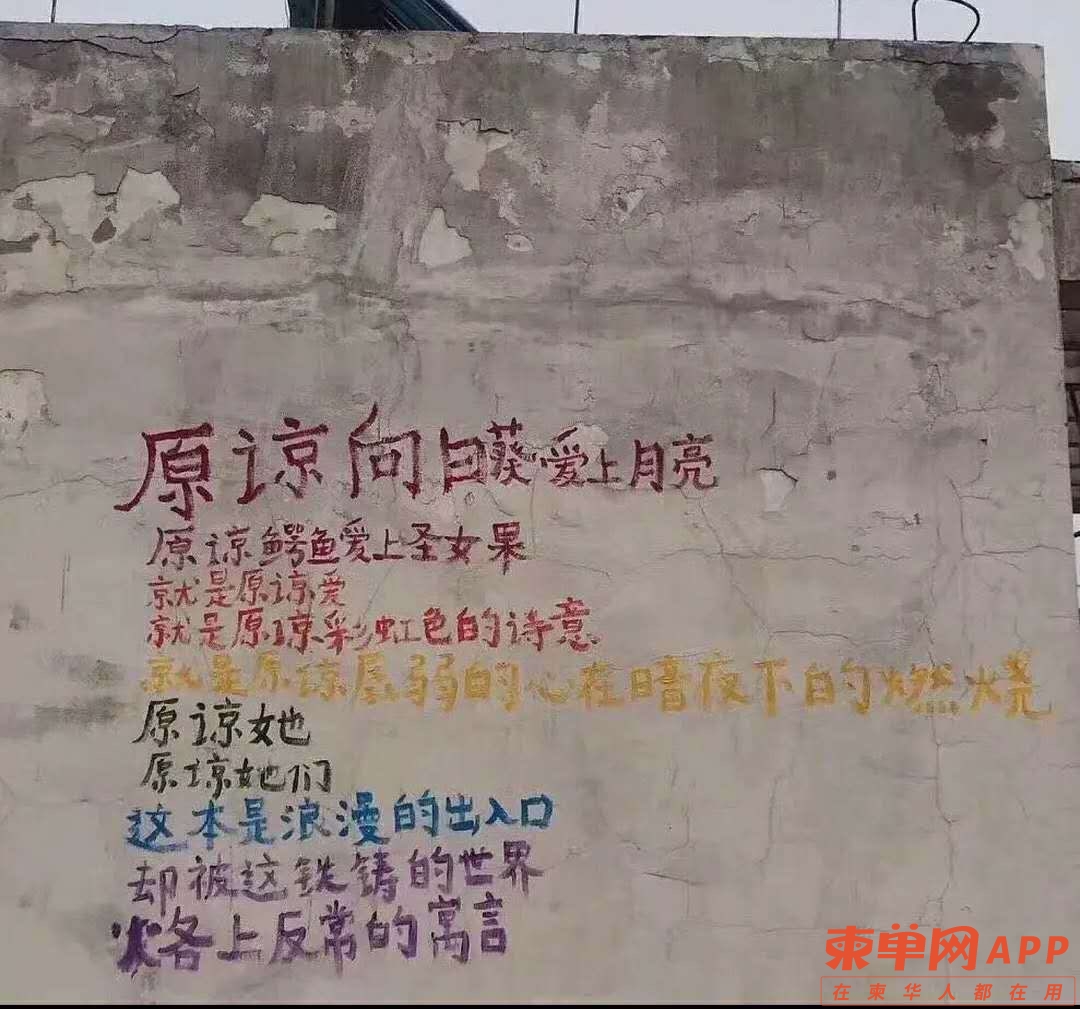 原谅向日葵爱上月亮
原谅鳄鱼爱上圣女果
就是原谅爱
就是原谅彩虹色的诗意
就是原谅孱弱的心在暗夜下的燃烧
原谅她
原谅她们
这本是浪漫的出入口
却被这铁铸的世界
烙上反常的寓言
柬单网APP
在柬华人都在用